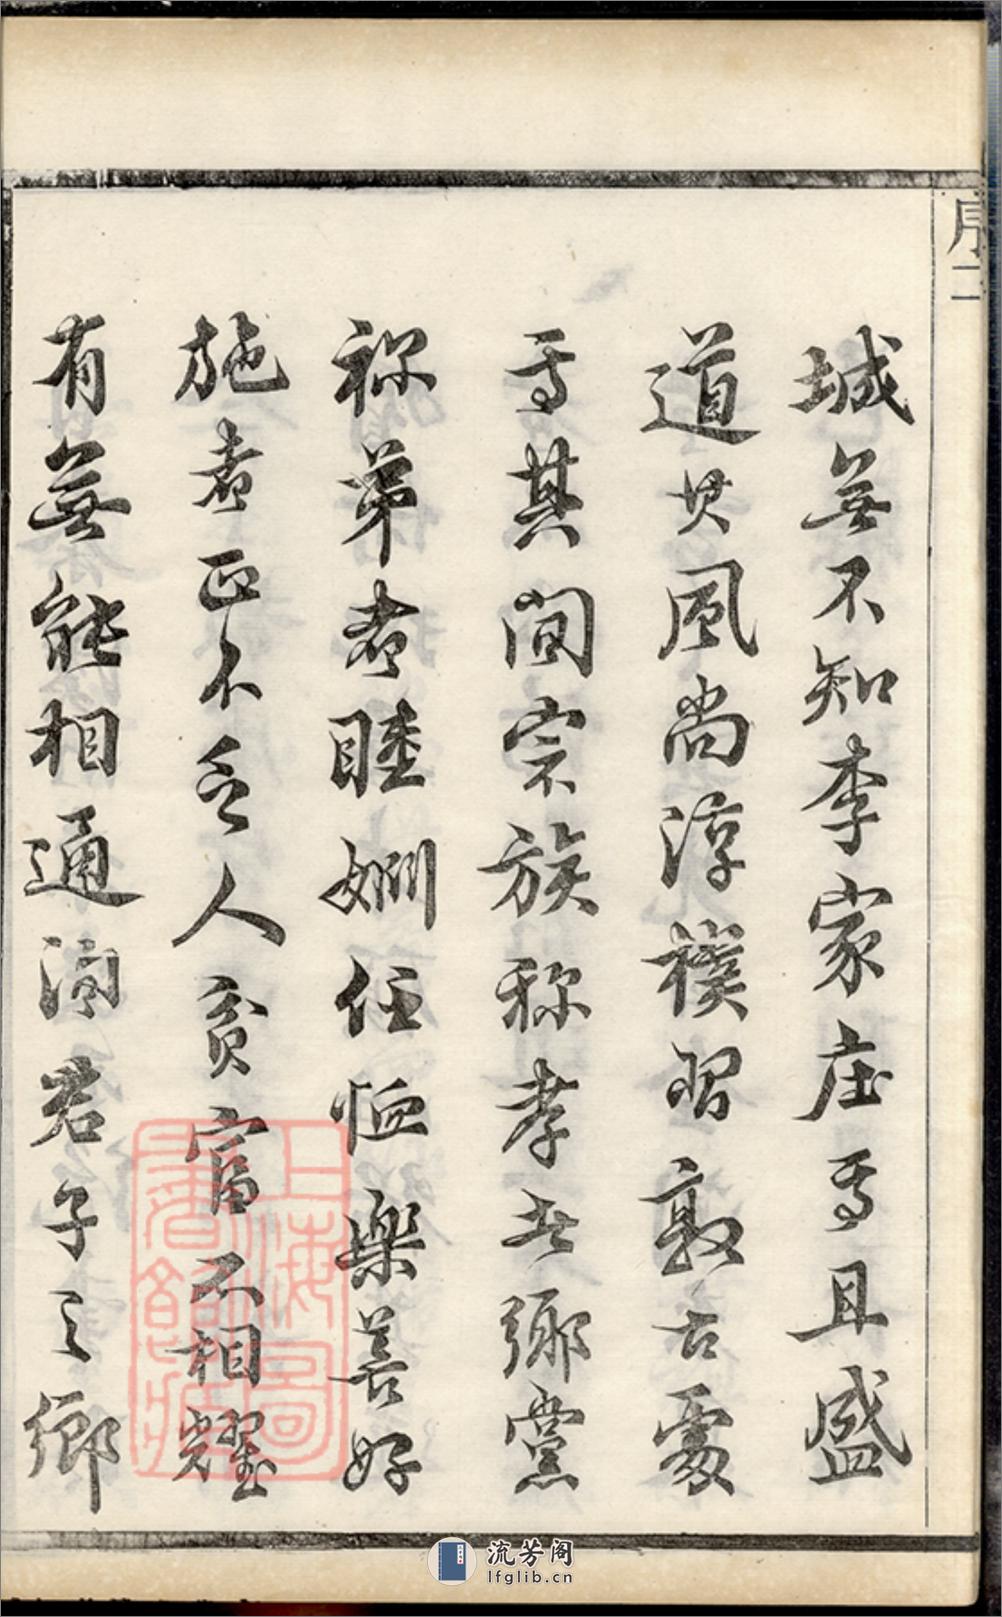 序二
城無不知李家庄焉且盛
道其風尚淳樸習敦古處
焉其間宗族称孝者鄉黨
称弟者睦婣任恤樂善好
施者正不乏人貧富不相耀
有無能相通洵君子之鄉
上海圖書館藏
流芳阁
lfglib.cn